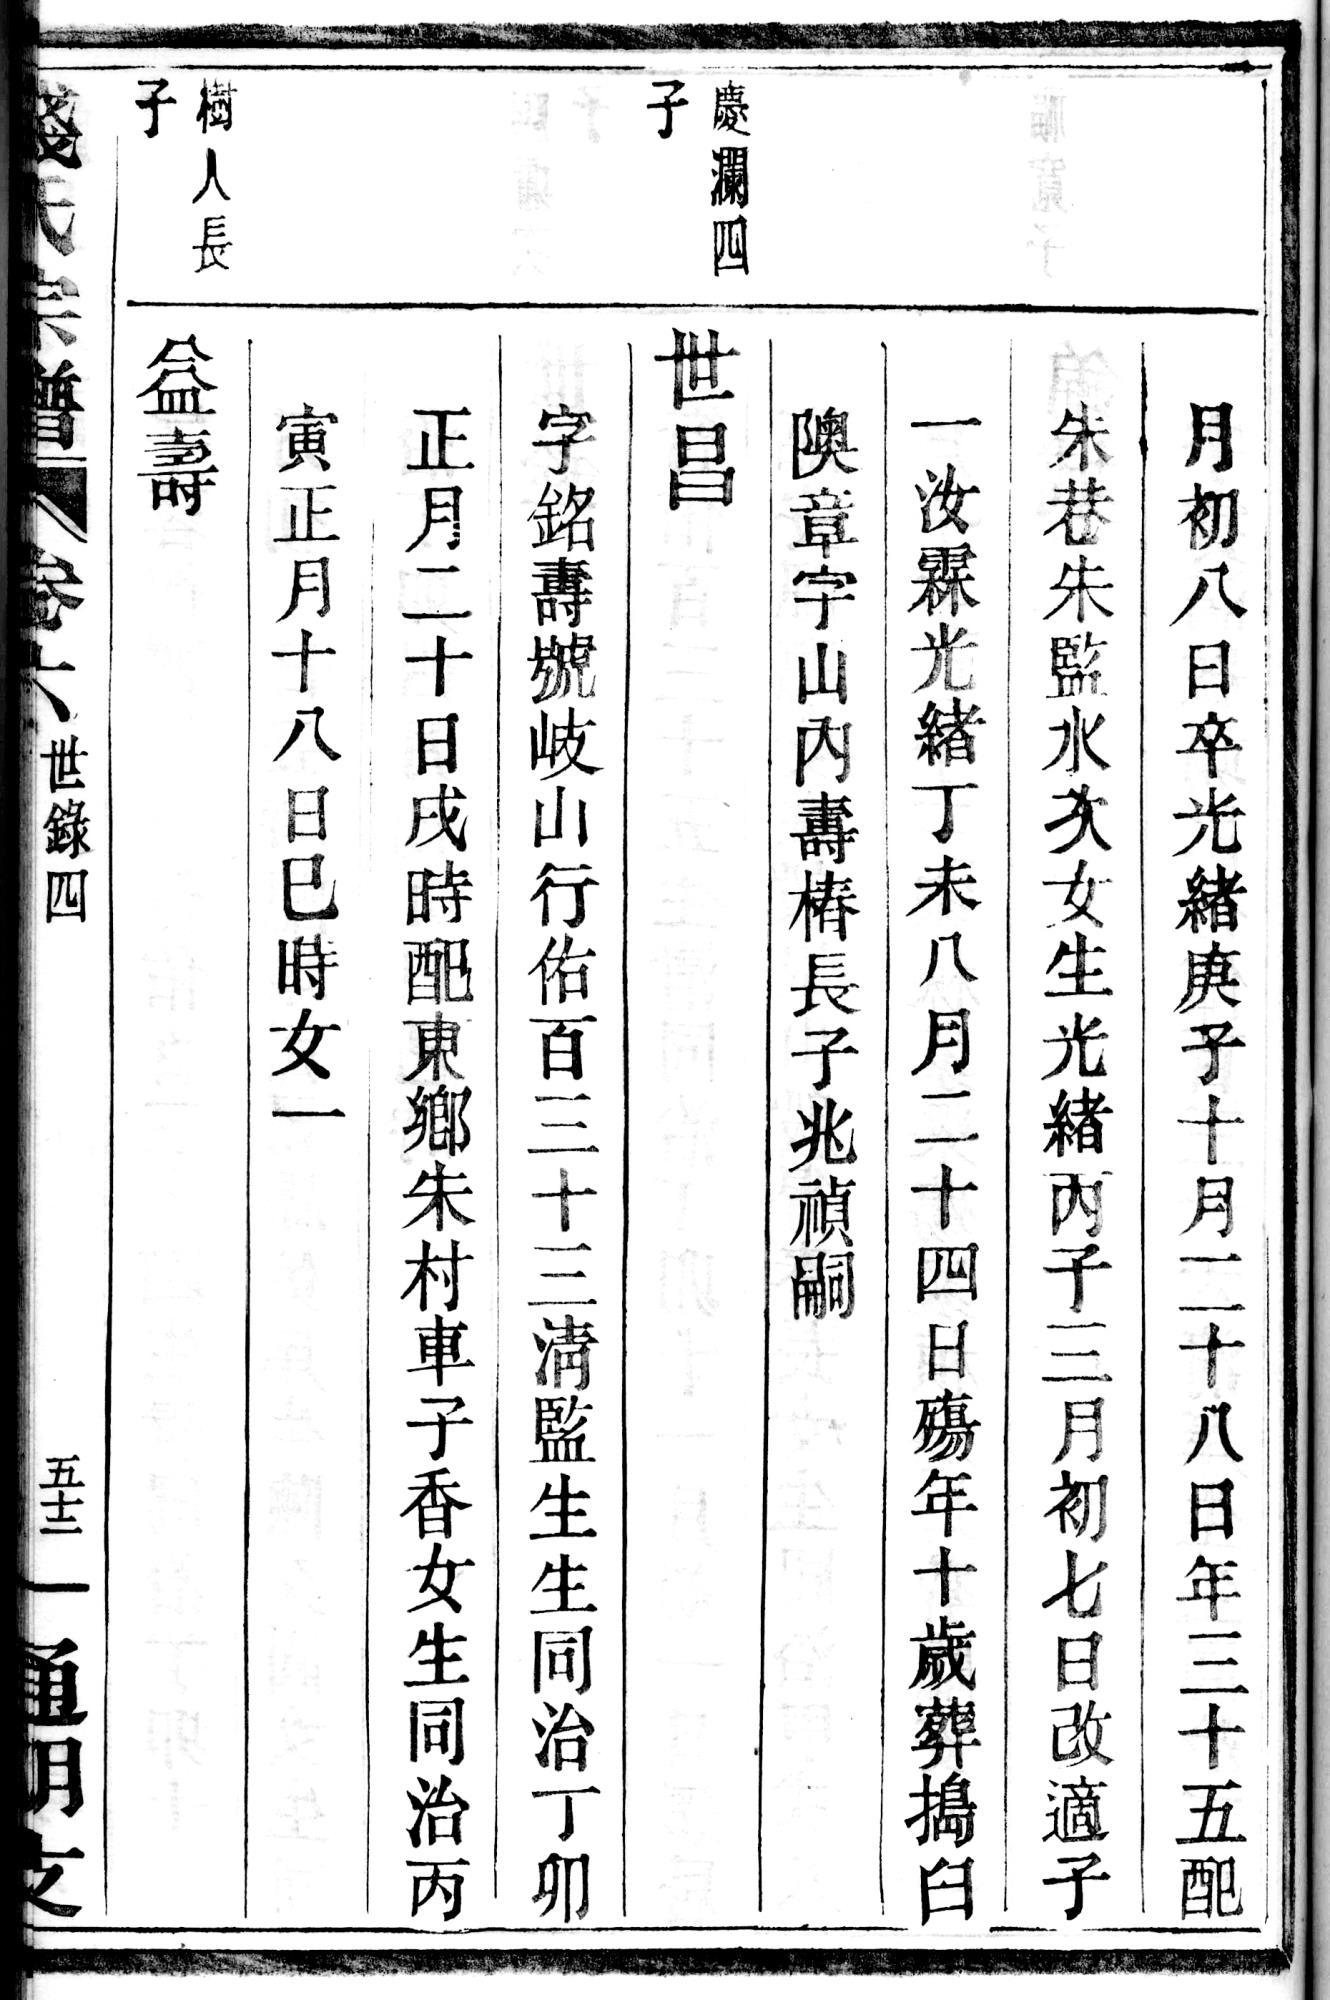 月初八日卒光緒庚子十月二十八日年三十五配
朱巷朱監水次女生光緒丙子三月初七日改適子
一汝霖光緒丁未八月二十四日殤年十歲葬搗臼
隩章字山內壽椿長子兆禎嗣
慶瀾四
子
世昌
字銘壽號岐山行佑百三十三淸監生生同治丁卯
正月二十日戌時配東鄉朱村車子香女生同治丙
寅正月十八日巳時女一
樹人長
子
益壽
錢氏宗譜 卷六 世錄四 五十二 通明支